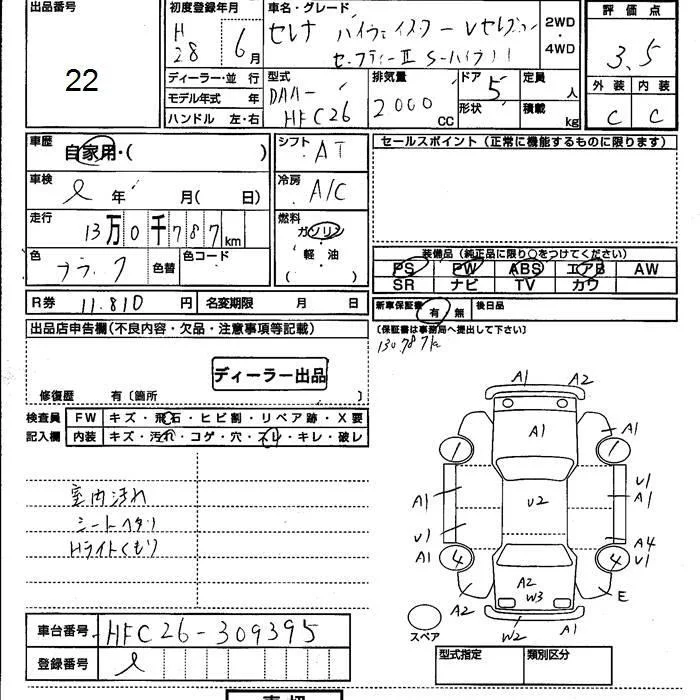 出品番号
22
初度登録年月
H 28 年 6 月
車名・グレード
セレナ ハイウェイスター Vセレクション
セーフティーⅡ S-ハイブリ
2WD
・
4WD
評価点
3.5
外装 内装
C C
ディーラー・並行
モデル年式 年
ハンドル 左・右
型式
DAA-
HFC26
排気量
2000
CC
ドア 5
形状
定員 人
積載 kg
車歴
自家用・( )
シフト
AT
車検
年 月( 日)
冷房
A/C
走行
13万0千787km
燃料
ガソリン
軽・油
( )
色
ブラック
色替
色コード
R券 11.810 円 名変期限 月 日
セールスポイント (正常に機能するものに限ります)
装備品 (純正品に限り○をつけてください)
PS PW ABS エアB AW
SR ナビ TV カワ
新車保証書 有・無 後日品
(保証書は事務局へ提出して下さい)
130787km
出品店申告欄(不良内容・欠品・注意事項等記載)
ディーラー出品
修復歴 有〔箇所 〕
検査員
記入欄
FW キズ・飛石・ヒビ割・リペア跡・X要
内装 キズ・汚れ・コゲ・穴・スレ・キレ・破レ
室内汚れ
シートヘタリ
Hライトくもり
A1 A2
A1 A1
1 1
A1 U2 U1 A1
U1 A4
A1 4 4 U1
A2 A2 W3 E
W2 A1
スペア
車台番号 HFC26-309395
登録番号
型式指定 類別区分